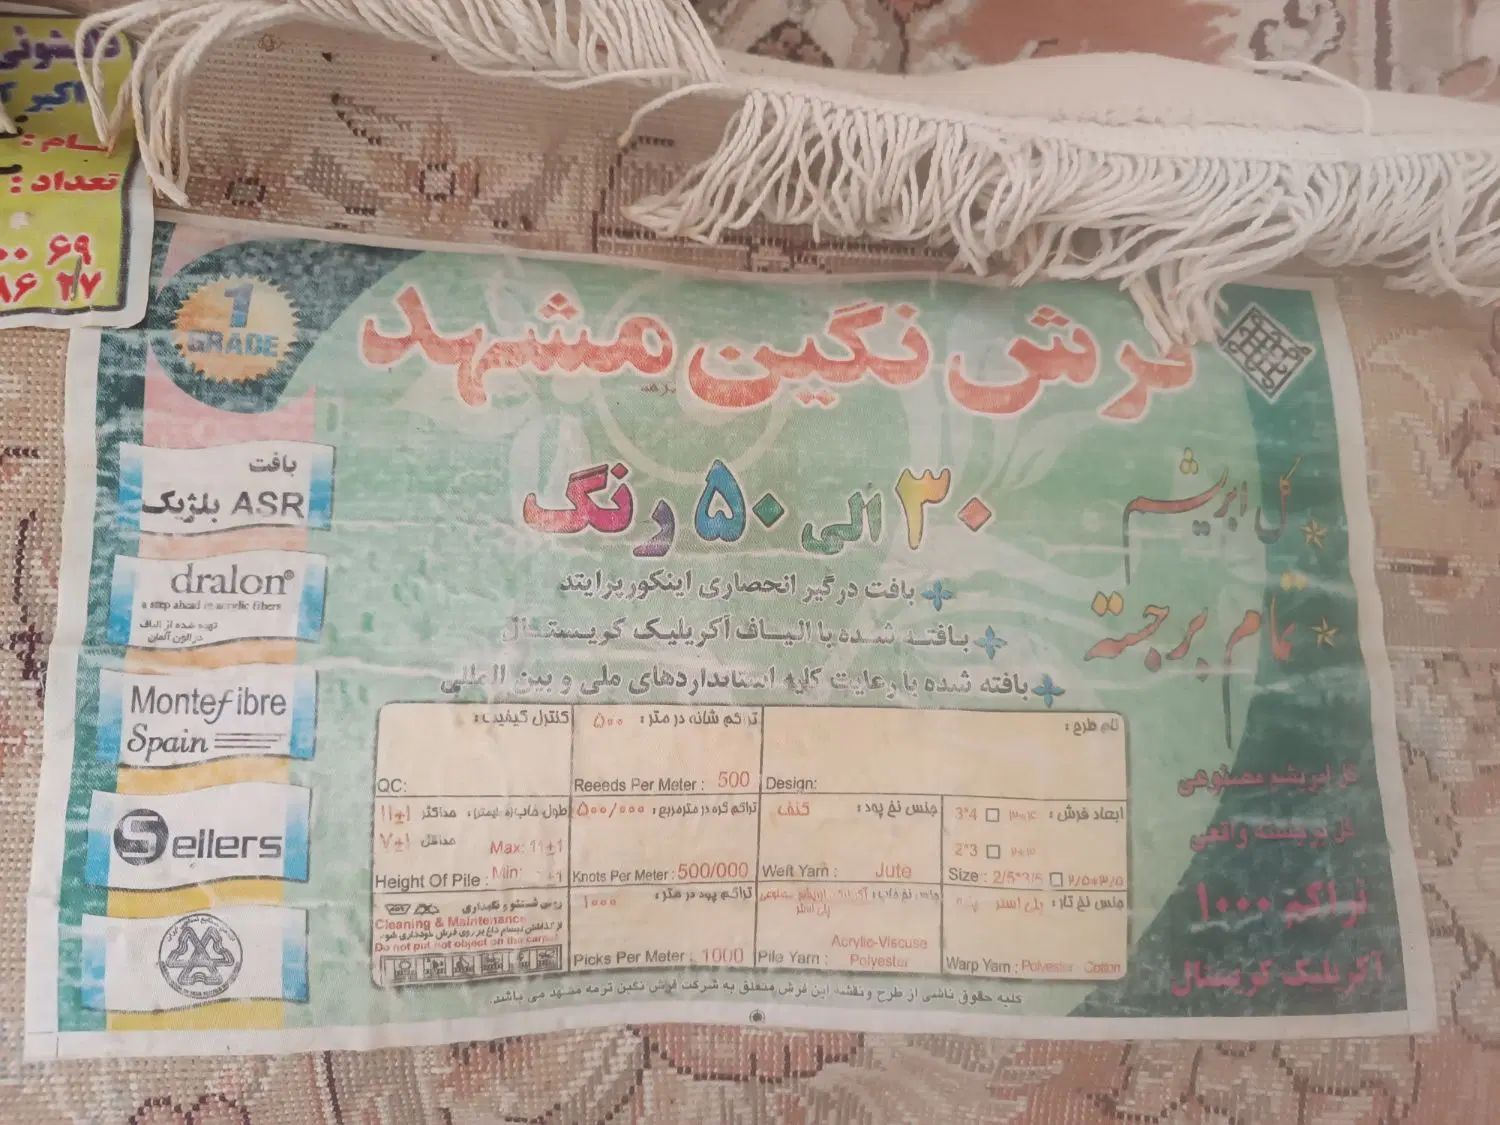 اکبر
تعداد :
۶۹
۲۷
1
GRADE
فرش نگین مشهد
ترمه
بافت
ASR بلژیک
dralon®
a step ahead in acrylic fibers
تهیه شده از الیاف
درالون آلمان
Montefibre
Spain
Sellers
۳۰ الی ۵۰ رنگ
بافت درگیر انحصاری اینکورپرایتد
بافته شده با الیاف آکریلیک کریستال
بافته شده با رعایت کلیه استانداردهای ملی و بین المللی
گل ابریشم
تمام برجسته
گل ابریشم مصنوعی
گل برجسته واقعی
تراکم ۱۰۰۰
آکریلیک کریستال
نام طرح :
Design:
تراکم شانه در متر : ۵۰۰
Reeeds Per Meter : 500
کنترل کیفیت :
QC:
ابعاد فرش : ۳*۴ 3*4
۲*۳ 2*3
Size : 2/5*3/5 ۲/۵*۳/۵
جنس نخ پود : کنف
Weft Yarn : Jute
تراکم گره در مترمربع : ۵۰۰/۰۰۰
Knots Per Meter : 500/000
طول خاب (میلیمتر) : حداکثر ۱۱±۱
حداقل ۷±۱
Max: 11±1
Height Of Pile : Min: ±1
جنس نخ تار : پلی استر پنبه
Warp Yarn : Polyester Cotton
جنس نخ خاب : آکریلیک ابریشم مصنوعی
پلی استر
Acrylic-Viscuse
Pile Yarn : Polyester
تراکم پود در متر : ۱۰۰۰
Picks Per Meter : 1000
روش شستشو و نگهداری
Cleaning & Maintenance
از گذاشتن اجسام داغ بر روی فرش خودداری شود
Do not put hot object on the carpet
کلیه حقوق ناشی از طرح و نقشه این فرش متعلق به شرکت فرش نگین ترمه مشهد می باشد.